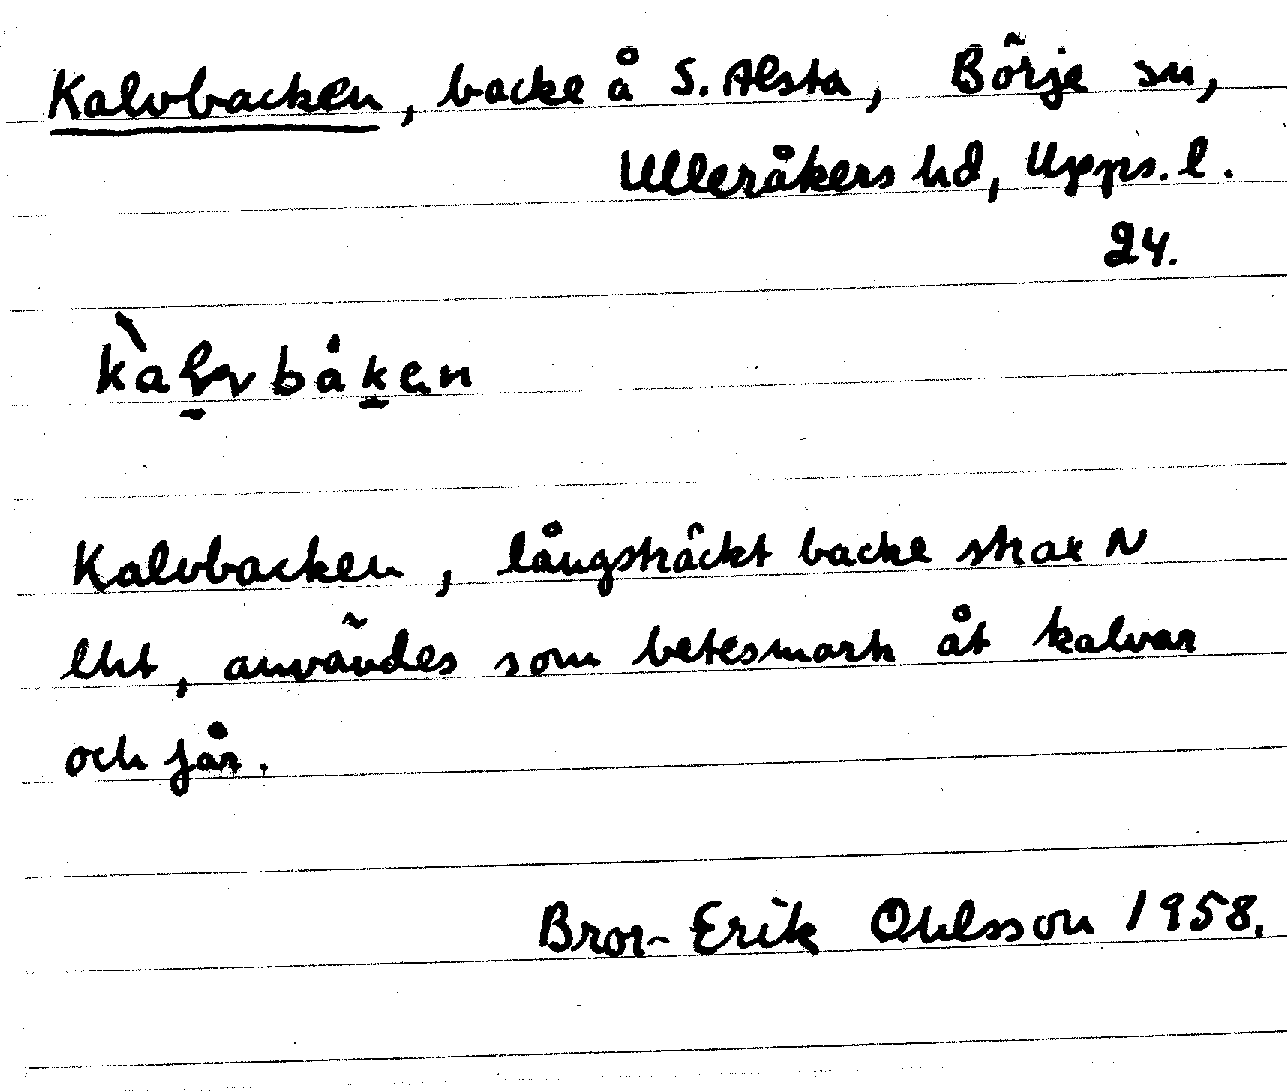 Kalvbacken, backe å S. Alsta, Börje sn,
Ulleråkers hd, Upps. l.
24.
Kalvbacken, långsträckt backe strax N
ekt, användes som betesmark åt kalvar
och får.
Bror-Erik Ohlsson 1958.